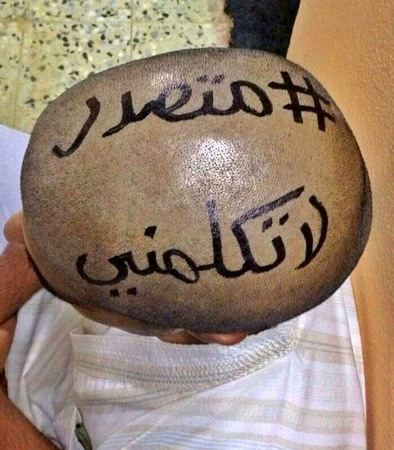 #متصدر
لاتكلمني